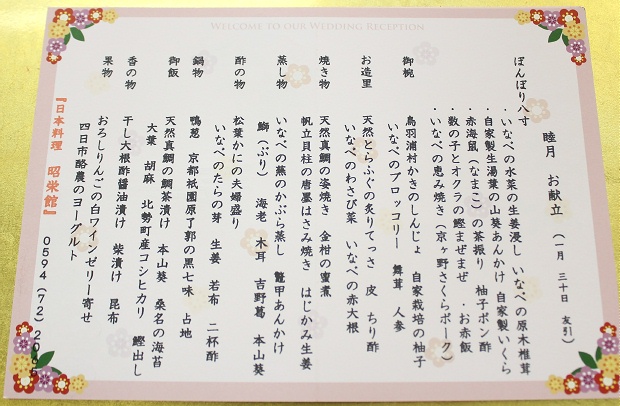 WELCOME TO OUR WEDDING RECEPTION
睦月 お献立 (一月 三十日 友引)
ぼんぼり八寸
・いなべの水菜の生姜浸し いなべの原木椎茸
・自家製生湯葉の山葵あんかけ 自家製いくら
・赤海鼠(なまこ)の茶振り 柚子ポン酢
・数の子とオクラの鰹まぜまぜ ・お赤飯
・いなべの恵み焼き(京ヶ野さくらポーク)
御椀 鳥羽浦村かきのしんじょ 自家栽培の柚子
いなべのブロッコリー 舞茸 人参
お造里 天然とらふぐの炙りてっさ 皮 ちり酢
いなべのわさび菜 いなべの赤大根
焼き物 天然真鯛の姿焼き 金柑の蜜煮
帆立貝柱の唐墨はさみ焼き はじかみ生姜
蒸し物 いなべの蕪のかぶら蒸し 鼈甲あんかけ
鰤(ぶり) 海老 木耳 吉野葛 本山葵
酢の物 松葉かにの夫婦盛り
いなべのたらの芽 生姜 若布 二杯酢
鍋物 鴨葱 京都祇園原了郭の黒七味 占地
御飯 天然真鯛の鯛茶漬け 本山葵 桑名の海苔
大葉 胡麻 北勢町産コシヒカリ 鰹出し
香の物 干し大根酢醤油漬け 柴漬け 昆布
果物 おろしりんごの白ワインゼリー寄せ
四日市酪農のヨーグルト
『日本料理 昭栄館』 0594(72)20